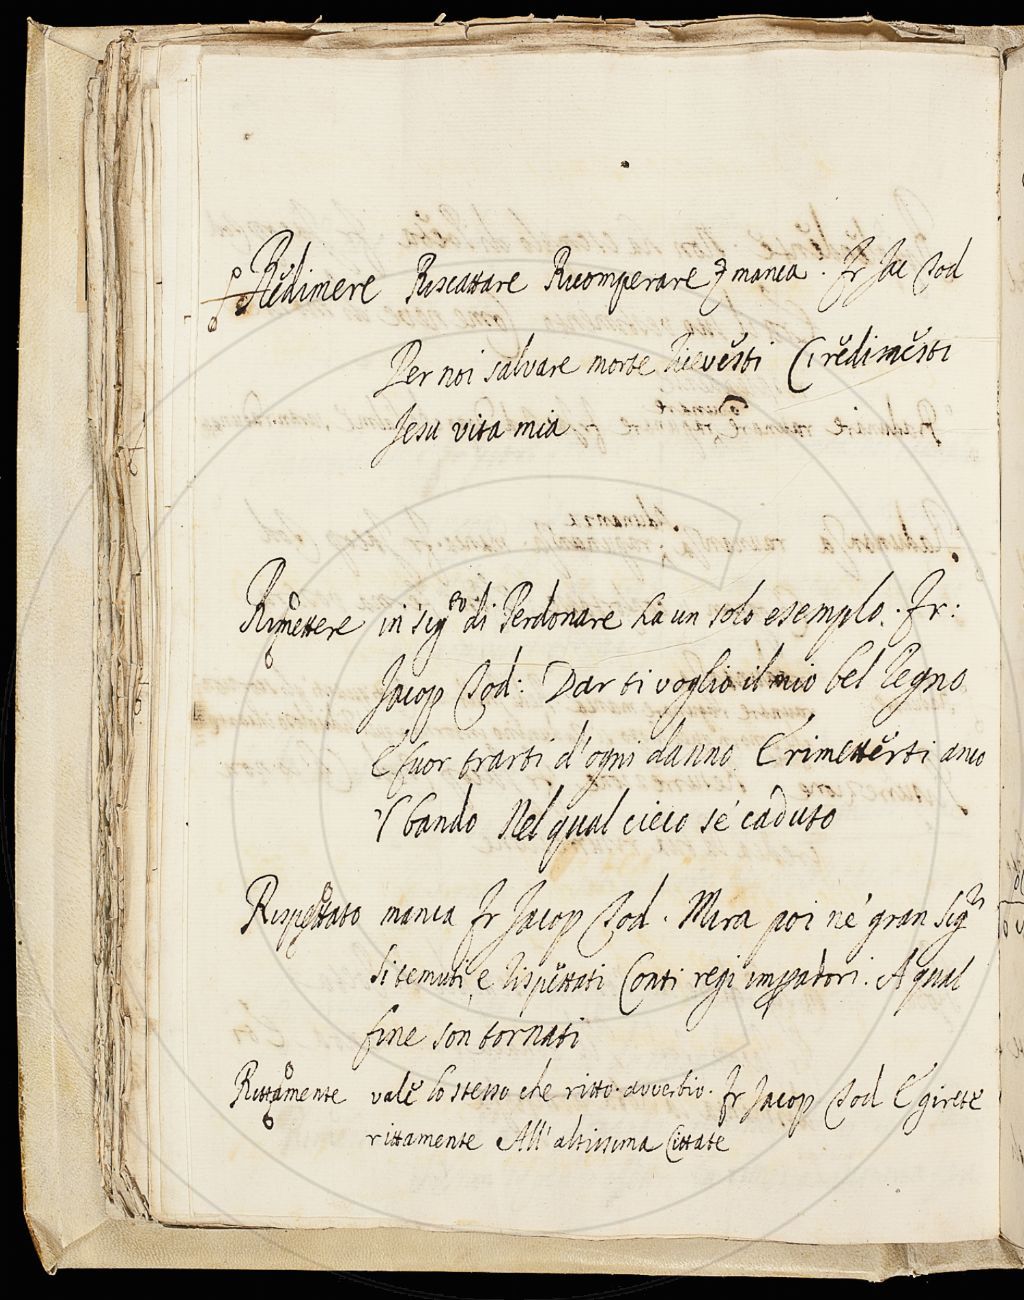 Redimere Riscattare Ricomperare manca. Fr Jac Tod
Per noi salvare morte ricevesti Ci redimesti
Jesu vita mia
Rimettere in sig.to di Perdonare ha un solo esempio. Fr:
Jacop Tod: Dar ti voglio il mio bel Regno
E fuor trarti d'ogni danno E rimetterti anco
'l bando Nel qual cieco se' caduto
Rispettato manca Fr Jacop Tod. Mira poi ne' gran Sig.ri
Si temuti, e rispettati Conti regi impadori. A qual
fine son tornati
Rittamente vale lo stesso che ritto avverbio. Fr Jacop Tod E girete
rittamente All' altissima Cittate